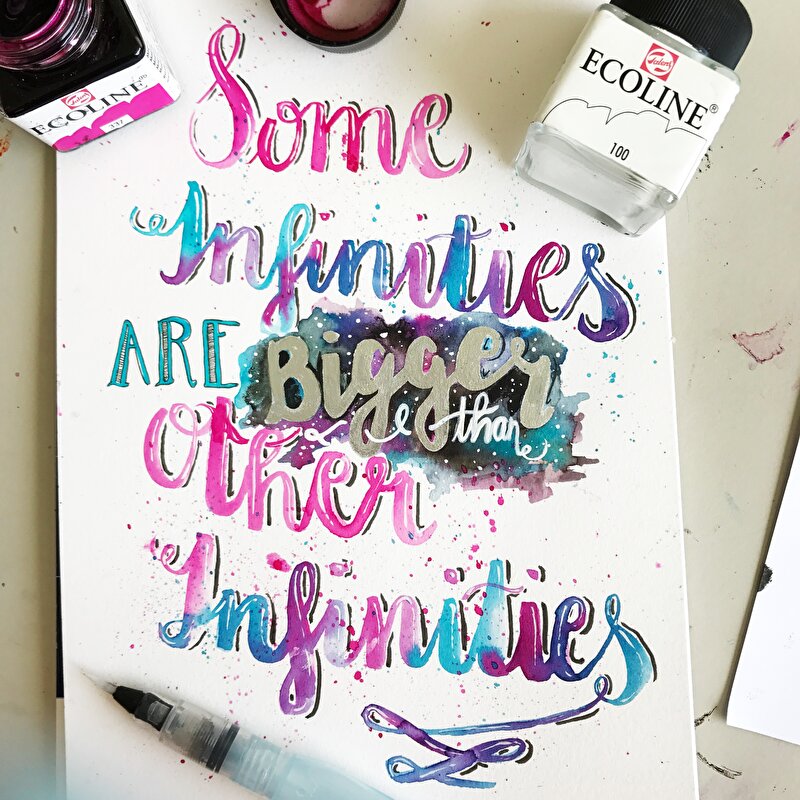 ECOLINE®
337
Talens
ECOLINE®
100
Some
Infinities
ARE Bigger
than
Other
Infinities